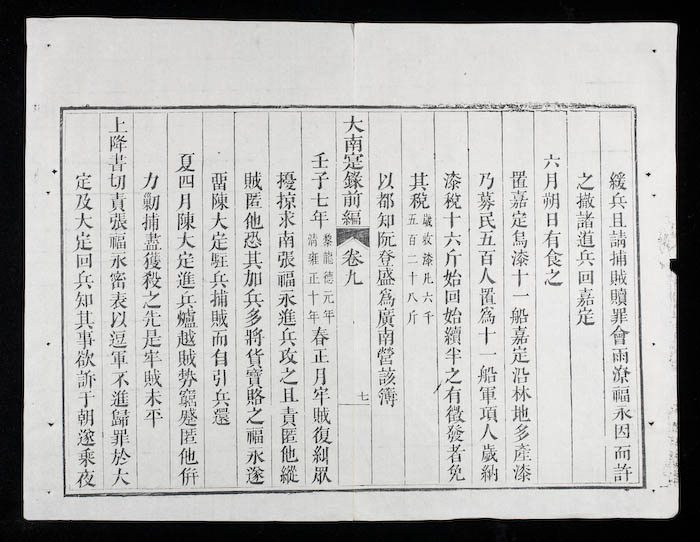 緩兵且請捕賊贖罪會雨潦福永因而許
之撤諸道兵回嘉定
六月朔日有食之
置嘉定烏漆十一船嘉定沿林地多產漆
乃募民五百人置爲十一船軍項人歲納
漆稅十六斤始回始續半之有徵發者免
其稅歲收漆凡六千五百二十八斤
以都知阮登盛爲廣南營該簿
大南寔錄前編 卷九 七
壬子七年黎龍德元年清雍正十年春正月牢賊復糾眾
擾掠求南張福永進兵攻之且責匿他縱
賊匿他恐其加兵多將貨寶賂之福永遂
畱陳大定駐兵捕賊而自引兵還
夏四月陳大定進兵爐越賊勢窮蹙匿他併
力勦捕盡獲殺之先是牢賊未平
上降書切責張福永密表以逗軍不進歸罪於大
定及大定回兵知其事欲訴于朝遂乘夜